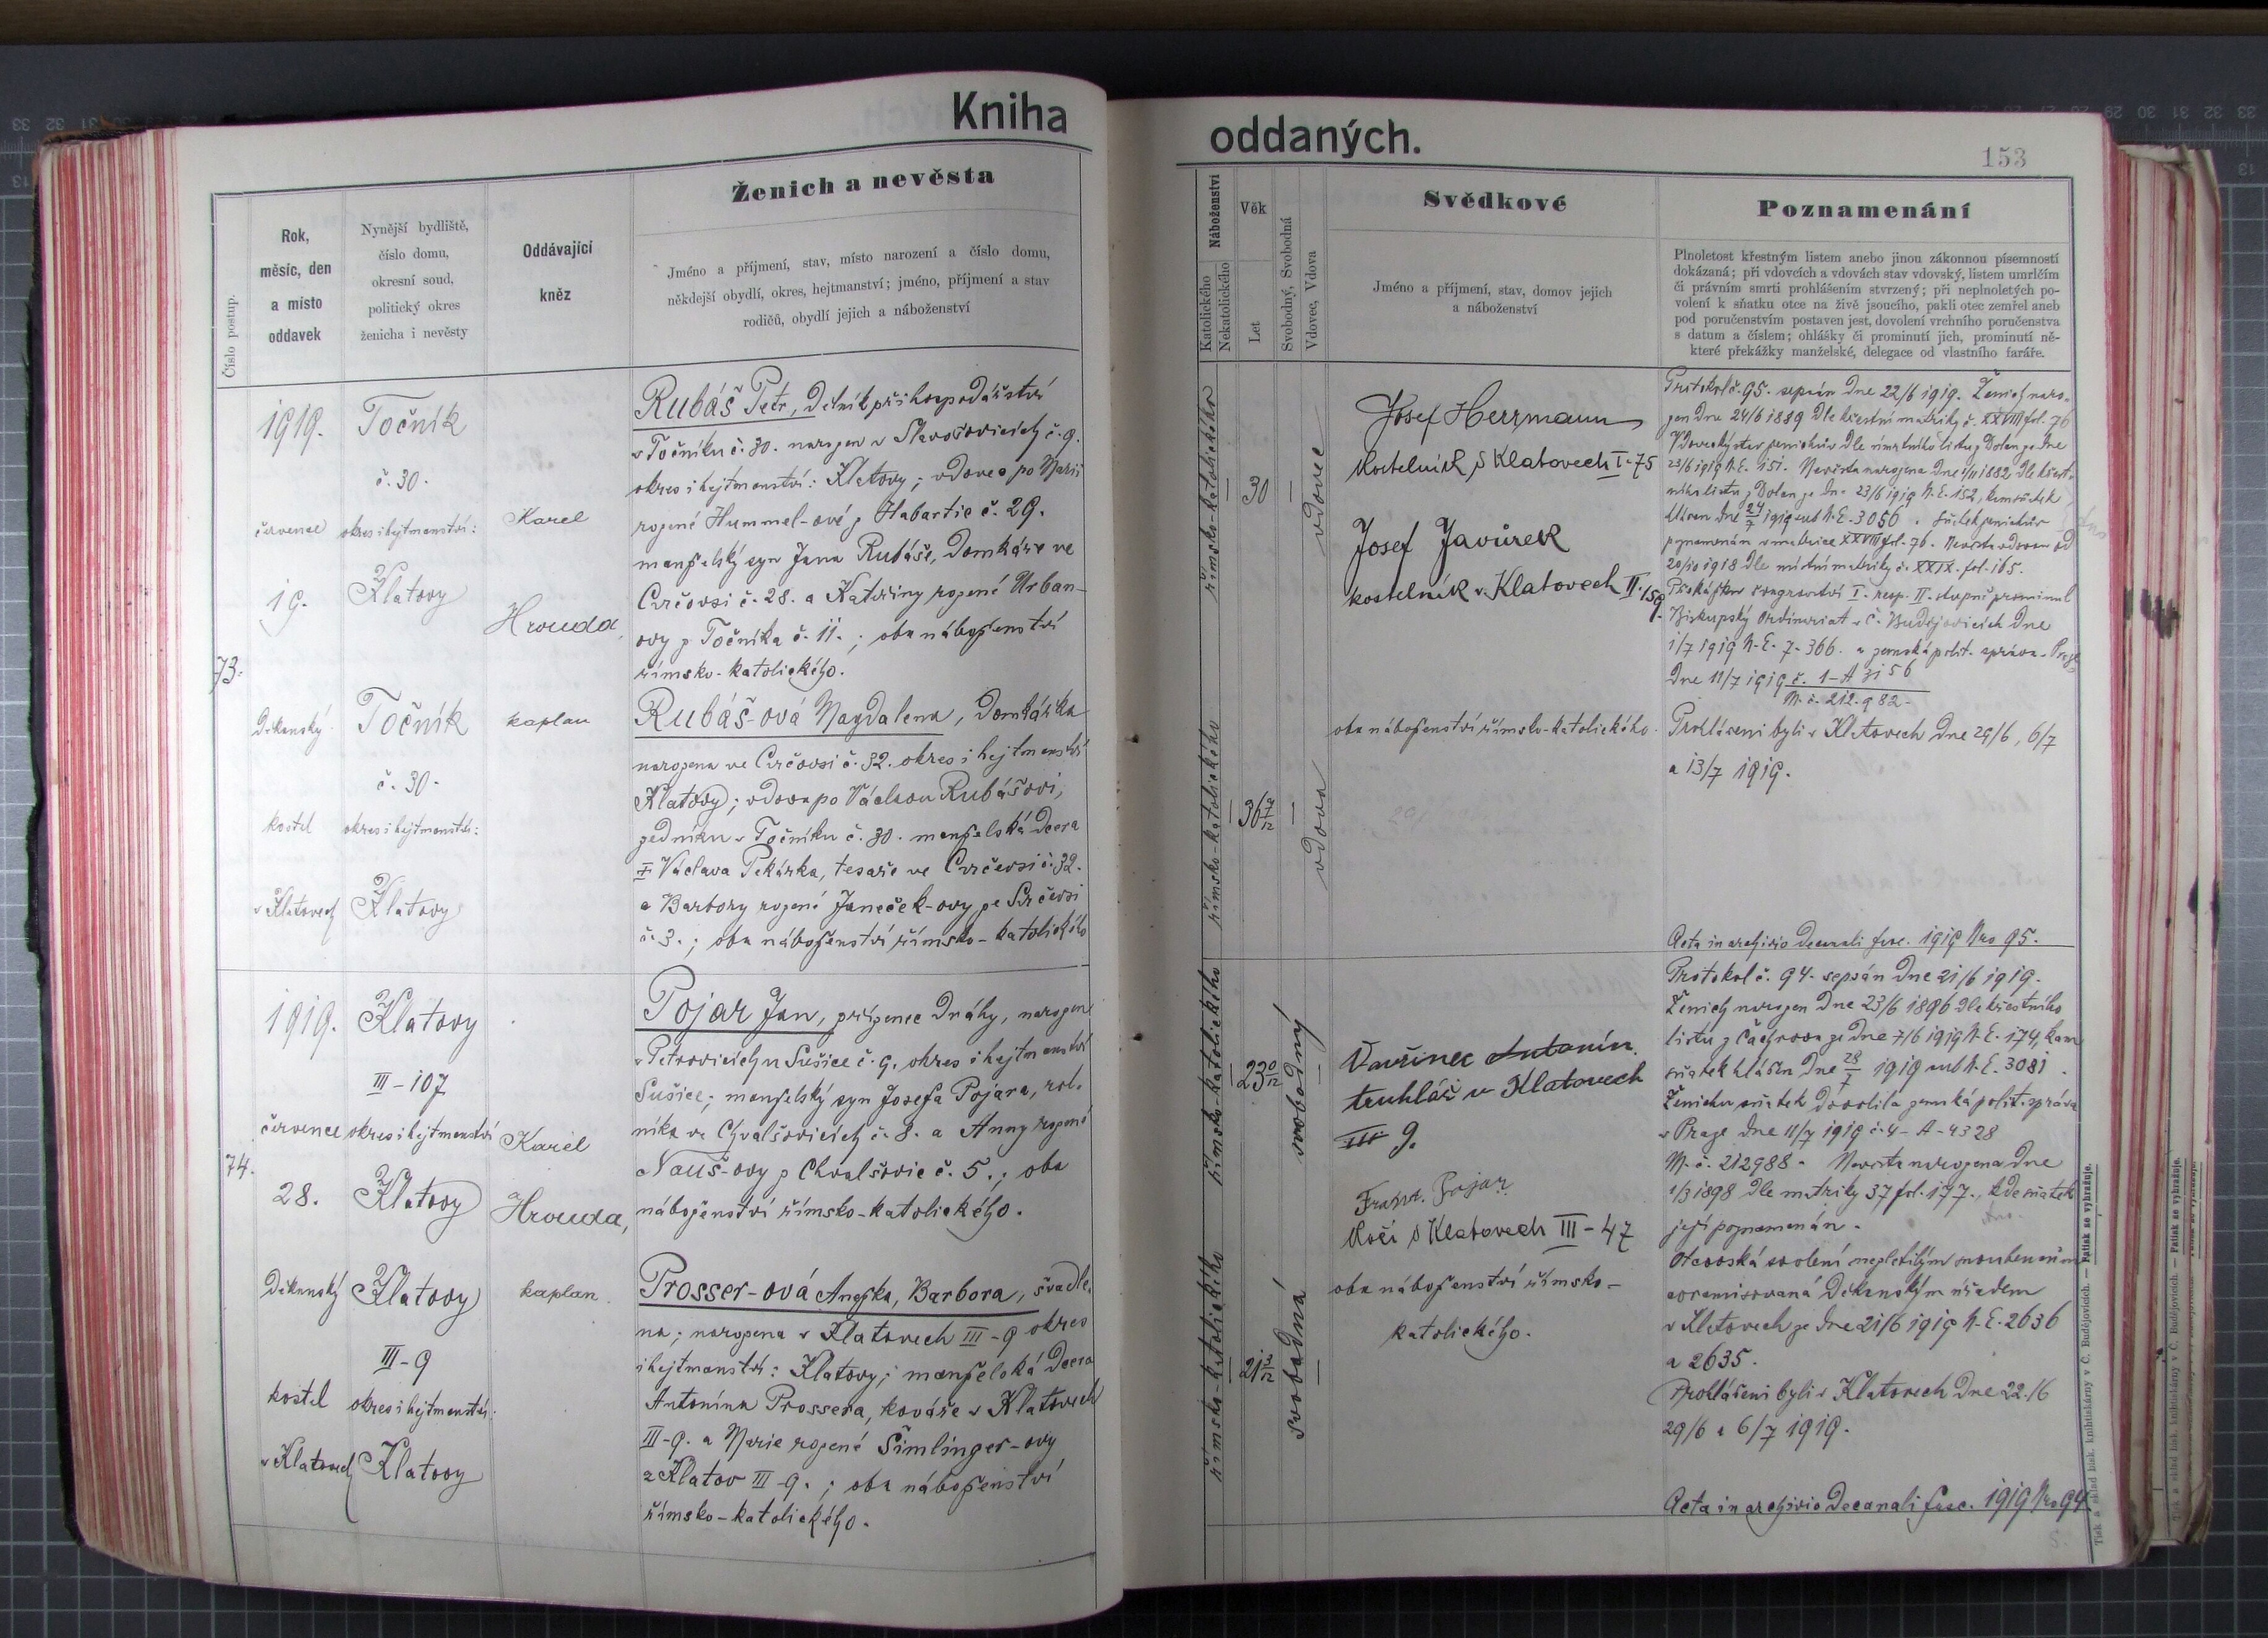 Kniha
oddaných.
153
Číslo postup.
Rok,
měsíc, den
a místo
oddavek
Nynější bydliště,
číslo domu,
okresní soud,
politický okres
ženicha i nevěsty
Oddávající
kněz
Ženich a nevěsta
Jméno a příjmení, stav, místo narození a číslo domu,
někdejší obydlí, okres, hejtmanství; jméno, příjmení a stav
rodičů, obydlí jejich a náboženství
Náboženství
Katolického
Nekatolického
Věk
Let
Svobodný, Svobodná
Vdovec, Vdova
Svědkové
Jméno a příjmení, stav, domov jejich
a náboženství
Poznamenání
Plnoletost křestným listem anebo jinou zákonnou písemností
dokázaná; při vdovcích a vdovách stav vdovský, listem umrlčím
či právním smrti prohlášením stvrzený; při neplnoletých po-
volení k sňatku otce na živě jsoucího, pakli otec zemřel aneb
pod poručenstvím postaven jest, dovolení vrchního poručenstva
s datum a číslem; ohlášky či prominutí jich, prominutí ně-
které překážky manželské, delegace od vlastního faráře.
73.
1919.
července
19.
Děkanský
kostel
v Klatovech
Točník
č. 30.
okres i hejtmanství:
Klatovy
Točník
č. 30.
okres i hejtmanství:
Klatovy
Karel
Hrouda,
kaplan
Rubáš Petr, dělník při hospodářství
v Točníku č. 30. narozen v Slavošovicích č. 9.
okres i hejtmanství: Klatovy; vdovec po Marii
rozené Hummel-ové z Habartic č. 29.
manželský syn Jana Rubáše, domkáře ve
Crčovsi č. 28. a Kateřiny rozené Urban-
ovy z Točníka č. 11.; oba náboženství
římsko-katolického.
Rubáš-ová Magdalena, domkářka
narozena ve Crčovsi č. 32. okres i hejtmanství
Klatovy; vdova po Václavu Rubášovi,
zedníku v Točníku č. 30. manželská dcera
Václava Pekárka, tesaře ve Crčovsi č. 32.
a Barbory rozené Janeček-ovy ze
č. 3.; oba náboženství římsko-katolického
římsko-katolického
30
vdovec
římsko-katolického
36 9/12
vdova
Josef Herrmann
kostelník v Klatovech I-75
Josef Javůrek
kostelník v Klatovech II-159.
oba náboženství římsko-katolického.
Protokol č. 95. sepsán dne 22/6 1919. Ženich naro-
zen dne 24/6 1889 dle křestní matriky č. XXVIII fol. 76
Vdovecký stav ženichův dle úmrtního listu z Dolan ze dne
23/6 1919 N.E. 151. Nevěsta narozena dne 1882 dle křest-
ního listu z Dolan ze dne 23/6 1919 N.E. 152, kam sňatek
hlášen dne 24/7 1919 sub N.E. 3056. Sňatek ženichův
poznamenán v matrice XXVIII fol. 76. Nevěsta vdovou od
20/10 1918 dle úmrtní matriky č. XXIX. fol. 165.
Překážku švagrovství I. resp. II. stupně prominul
Biskupský Ordinariat v Č. Budějovicích dne
1/7 1919 N.E. 7-366. a zemská polit. správa v Praze
dne 11/7 1919 č. 1-A 3156
M.č. 212.982.
Prohlášeni byli v Klatovech dne 29/6, 6/7
a 13/7 1919.
Acta in archivio decanali fasc. 1919 Nro 95.
74.
1919.
července
28.
Děkanský
kostel
v Klatovech
Klatovy
III-107
okres i hejtmanství
Klatovy
Klatovy
III-9
okres i hejtmanství:
Klatovy
Karel
Hrouda,
kaplan.
Pojar Jan, zřízenec dráhy, narozen
v Petrovicích u Sušice č. 9, okres i hejtmanství
Sušice; manželský syn Josefa Pojara, rol-
níka ve Chvalšovicích č. 8. a Anny rozené
Nauš-ovy z Chvalšovic č. 5.; oba
náboženství římsko-katolického.
Prosser-ová Anežka, Barbora, švadle-
na; narozena v Klatovech III-9 okres
i hejtmanství: Klatovy; manželská dcera
Antonína Prossera, kováře v Klatovech
III-9. a Marie rozené Šimlinger-ovy
z Klatov III-9.; oba náboženství
římsko-katolického.
římsko-katolického
23 0/12
svobodný
římsko-katolického
21 3/12
svobodná
Vavřinec Antonín.
truhlář v Klatovech
III 9.
Frant. Pojar
kočí v Klatovech III-47
oba náboženství římsko-
katolického.
Protokol č. 94. sepsán dne 21/6 1919.
Ženich narozen dne 23/6 1896 dle křestního
listu z Čachrova ze dne 7/6 1919 N.E. 174, kam
sňatek hlášen dne 28/7 1919 sub N.E. 3081.
Ženichu sňatek dovolila zemská polit. správa
v Praze dne 11/7 1919 č. 4-A-4328
M.č. 212988. Nevěsta narozena dne
1/3 1898 dle matriky 37 fol. 177., kde sňatek
její poznamenán.
Otcovská svolení nezletilým snoubencům
dána Děkanským úřadem
v Klatovech ze dne 21/6 1919 N.E. 2636
a 2635.
Prohlášeni byli v Klatovech dne 22/6
29/6 a 6/7 1919.
Acta in archivio Decanali fasc. 1919 Nro 94.
Tisk a sklad bisk. knihtiskárny v Č. Budějovicích. — Patisk se vyhražuje.